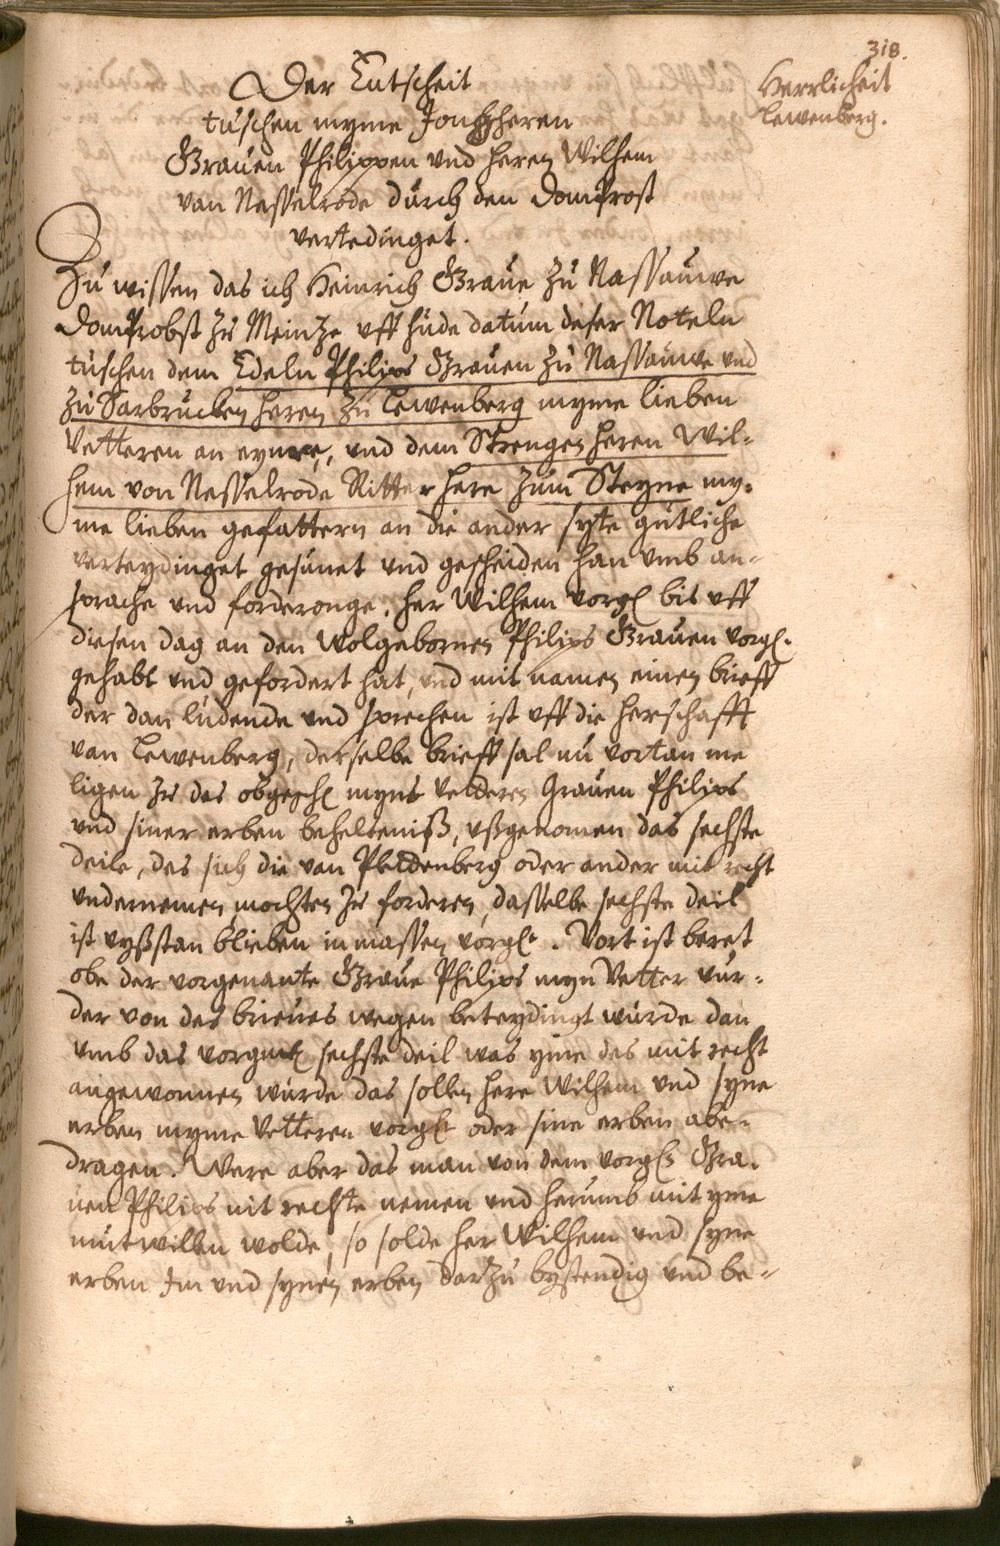 318.
Herrlicheit
Lewenberg.
Der Entscheit
tuschen myme Joncheren
Grauen Philippen vnd heren Wilhem
van Nesselrode durch den Domprost
vertedinget.
Zu wissen das ich Heinrich Graue zu Nassauwe
Domprobst zu Meintze vff hude datum deser Noteln
tuschen dem Edeln Philips Grauen zu Nassauwe vnd
zu Sarbrucken heren zu Lewenberg myme lieben
Vetteren an eyme, vnd dem Strengen heren Wil-
hem von Nesselrode Ritter here zum Steyne my-
me lieben gefattern an die ander syte gutliche
verteydinget gesunet vnd gescheiden han vmb an-
sprache vnd forderonge, her Wilhem vorgl bis vff
diesen dag an den Wolgebornen Philips Grauen vorgl.
gehabt vnd gefordert hat, vnd mit namen einen brieff
der dan ludende vnd sprechen ist vff die herschafft
van Lewenberg, derselbe brieff sal nu vortan me
ligen zu des obgeschl myns Vedderen Grauen Philips
vnd siner erben behelteniß, vßgenomen das sechste
deile, des sich die van Plettenberg oder ander mit recht
vndernemen mochten zu forderen, dasselbe sechste deil
ist vyßstan blieben in massen vorgl. Vort ist beret
obe der vorgenante Graue Philips myn Vetter vur-
der von des brieues wegen beteydingt wurde dan
vmb das vorgml sechste deil was yme des mit recht
angewonnen wurde das sollen here Wilhem vnd syne
erben myme Vetteren vorgl oder sine erben abe-
dragen. Were aber das man von dem vorgl Gra-
uen Philips nit rechte nemen vnd herumb mit yme
mutwillen wolde, so solde her Wilhem vnd syne
erben Im vnd synen erben darzu bystendig vnd be-